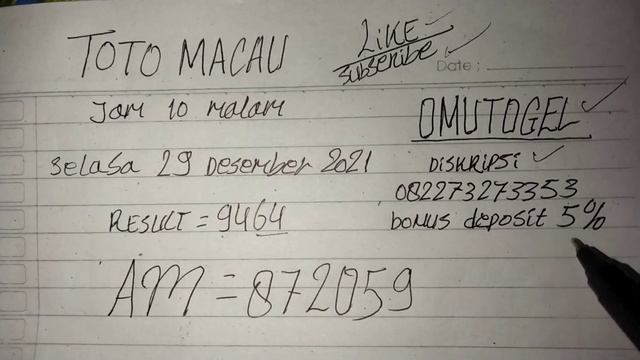 TOTO MACAU
LIKE
Subscribe
Date :
Jam 10 malam
OMUTOGEL
Selasa 29 Desember 2021
DISKRIPSI
082273273353
RESULT = 9464
bonus deposit 5%
AM = 872059